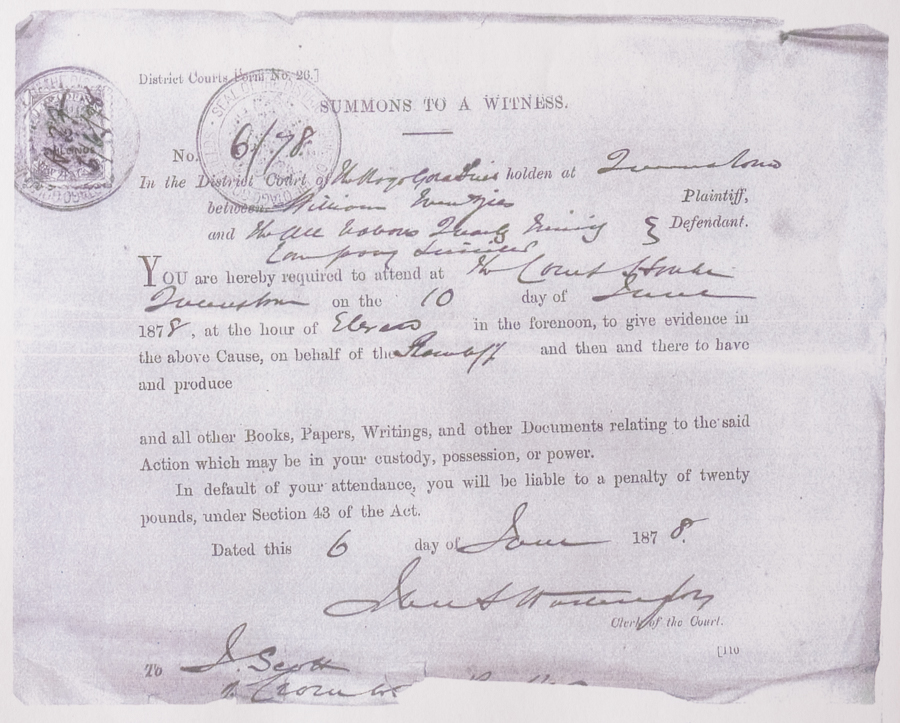 District Courts Form No. 26.]
SUMMONS TO A WITNESS.
No. 6/78
In the District Court of the Goldfields holden at Queenstown
between William
Plaintiff,
and The All Nations Quartz Mining
Defendant.
Company Limited
YOU are hereby required to attend at the Court House
Queenstown on the 10 day of June
1878, at the hour of Eleven in the forenoon, to give evidence in
the above Cause, on behalf of the Plaintiff and then and there to have
and produce
and all other Books, Papers, Writings, and other Documents relating to the said
Action which may be in your custody, possession, or power.
In default of your attendance, you will be liable to a penalty of twenty
pounds, under Section 43 of the Act.
Dated this 6 day of June 1878.
Clerk of the Court.
[110
To J. Scott